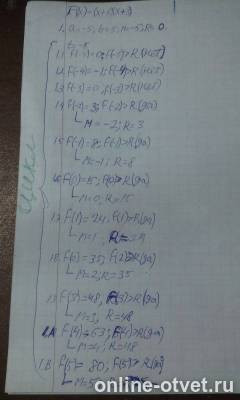 F(x)=(x+5)(x+3)
1. a=-5; b=5; M=-5; R=0.
t=-5
1.1 F(-5)=0; F(-5)>R(нет)
1.2 F(-4)=-1; F(-4)>R(нет)
1.3 F(-3)=0; F(-3)>R(нет)
1.4 F(-2)=3; F(-2)>R(да)
M=-2; R=3
1.5 F(-1)=8; F(-1)>R(да)
M=-1; R=8
1.6 F(0)=15; F(0)>R(да)
M=0; R=15
1.7 F(1)=24; F(1)>R(да)
M=1; R=24
1.8 F(2)=35; F(2)>R(да)
M=2; R=35
1.9 F(3)=48; F(3)>R(да)
M=3; R=48
1.A F(4)=63; F(4)>R(да)
1.B F(5)=80; F(5)>R(да)
цикл
online-otvet.ru